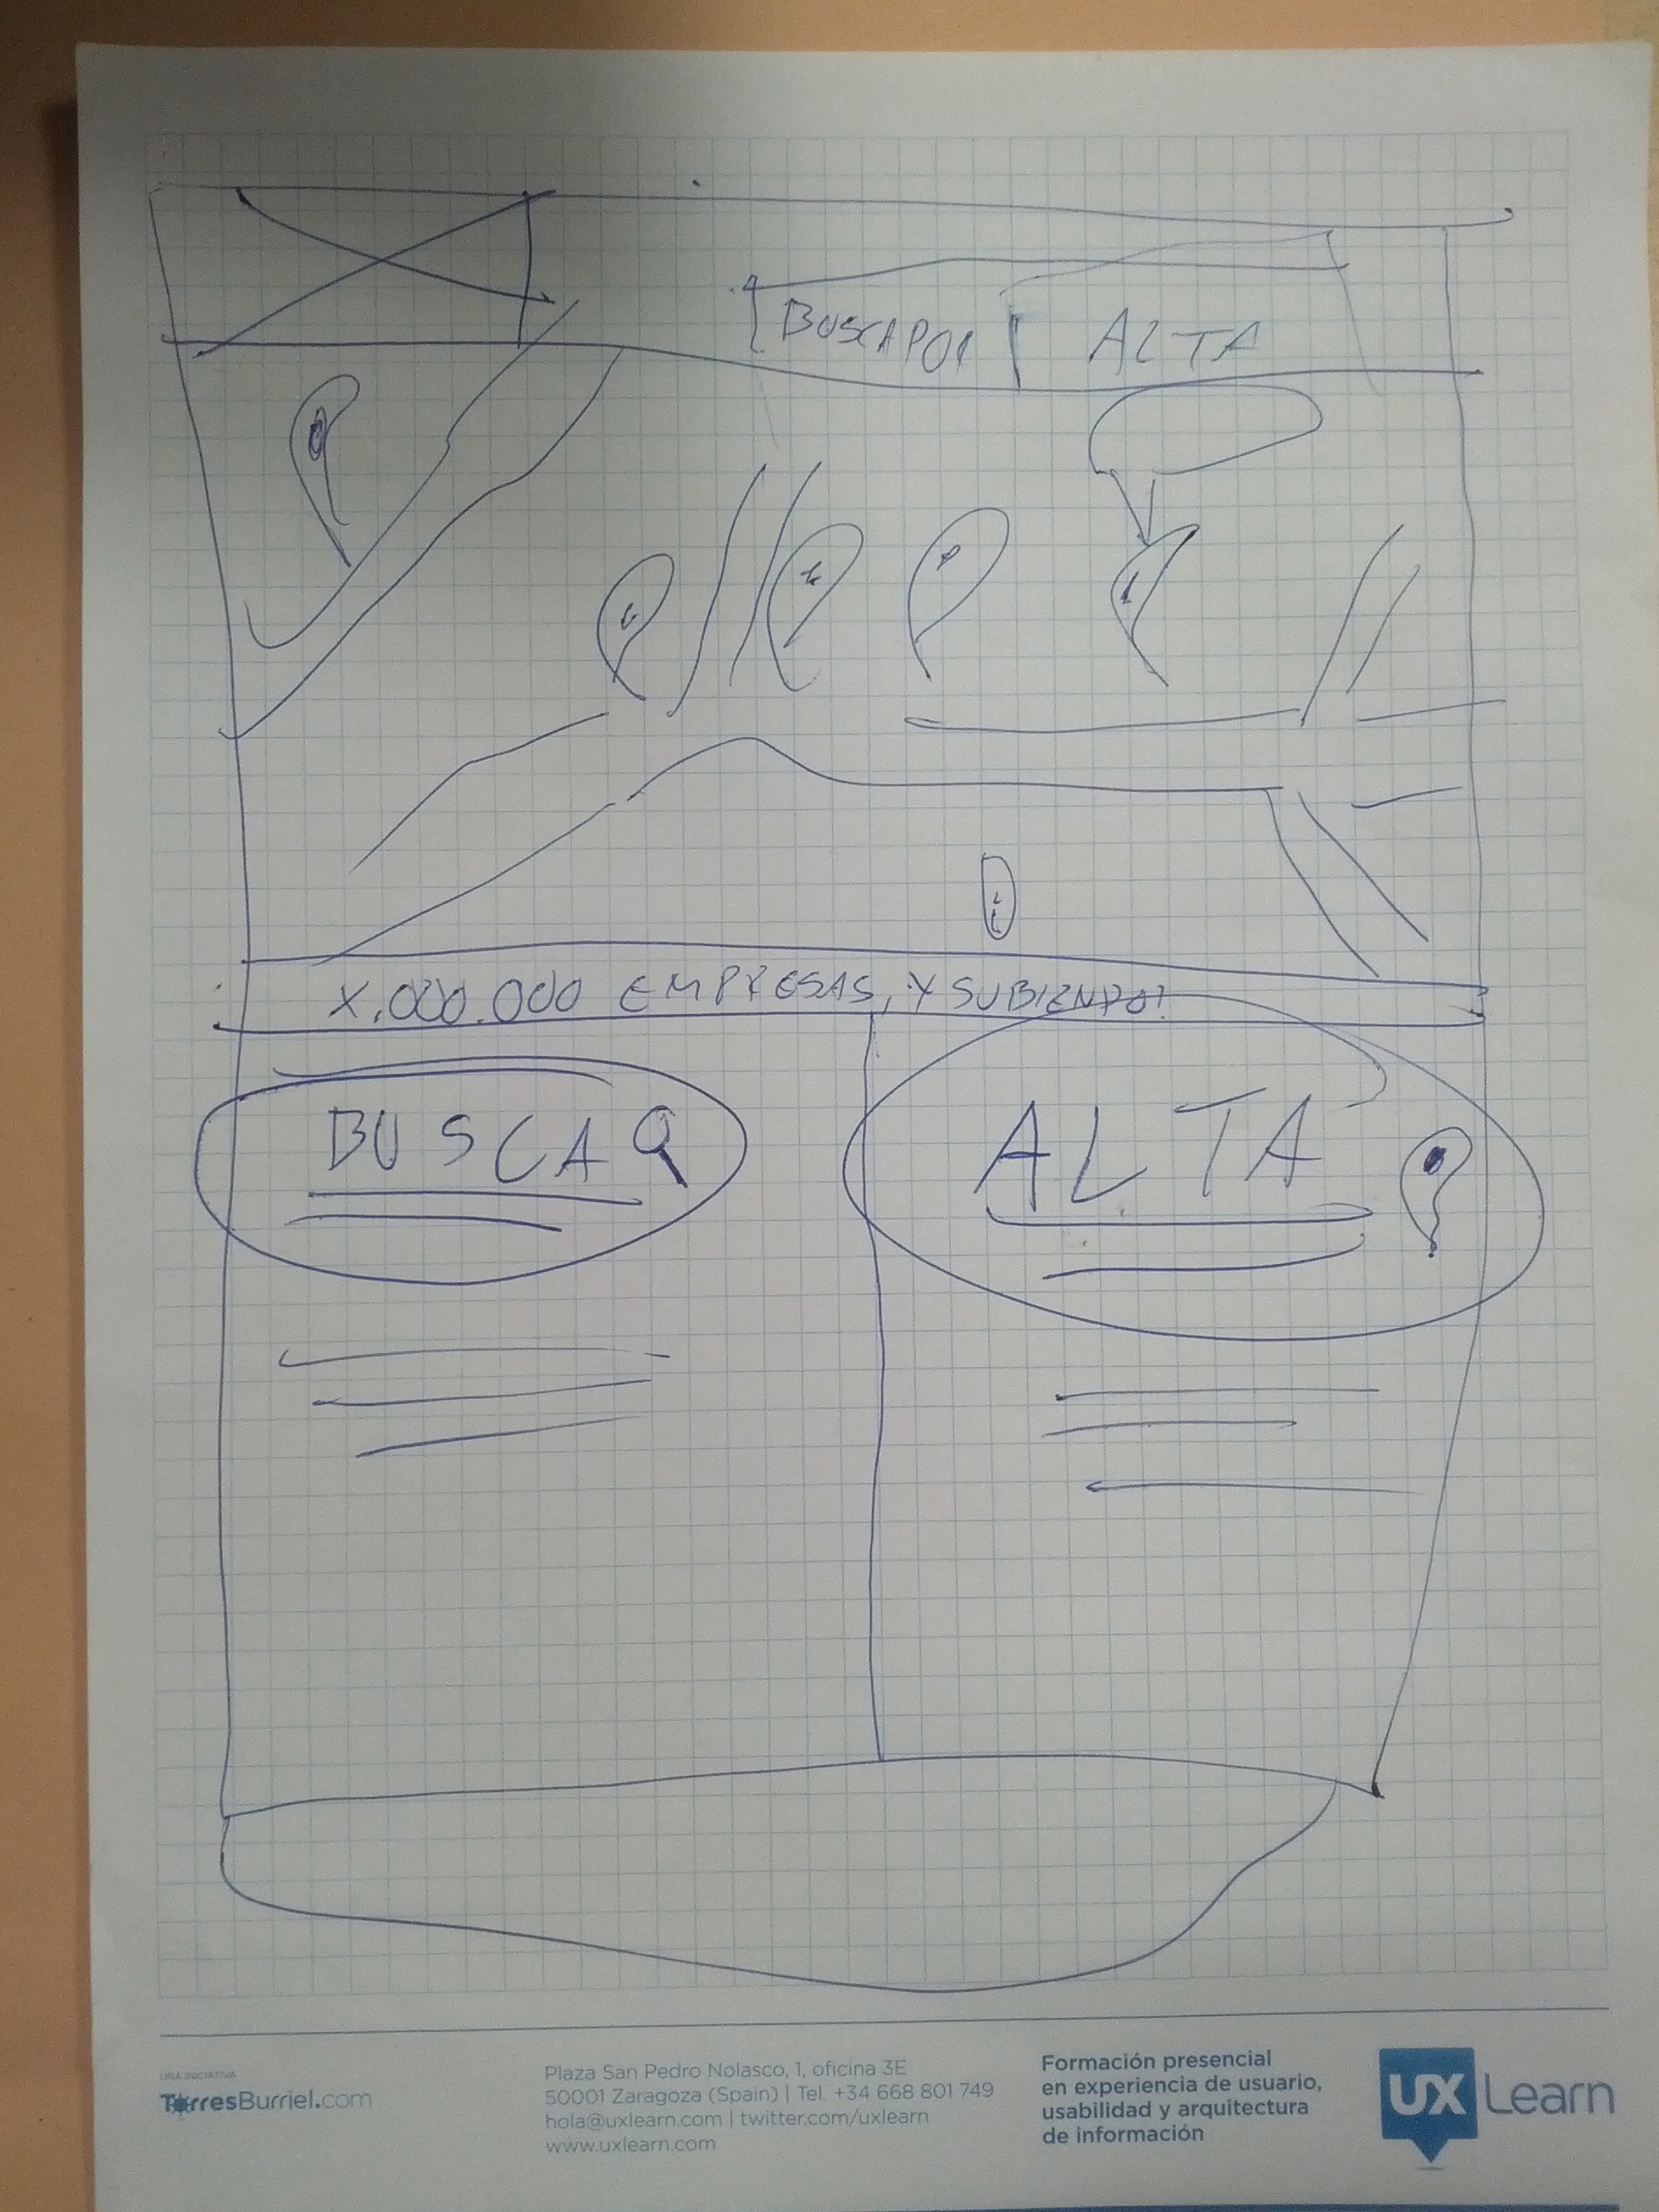 BUSCADOR ALTA
X.000.000 EMPRESAS, Y SUBIENDO!
BUSCA
ALTA
UNA INICIATIVA
TorresBurriel.com
Plaza San Pedro Nolasco, 1, oficina 3E
50001 Zaragoza (Spain) | Tel. +34 668 801 749
hola@uxlearn.com | twitter.com/uxlearn
www.uxlearn.com
Formación presencial
en experiencia de usuario,
usabilidad y arquitectura
de información
UX Learn